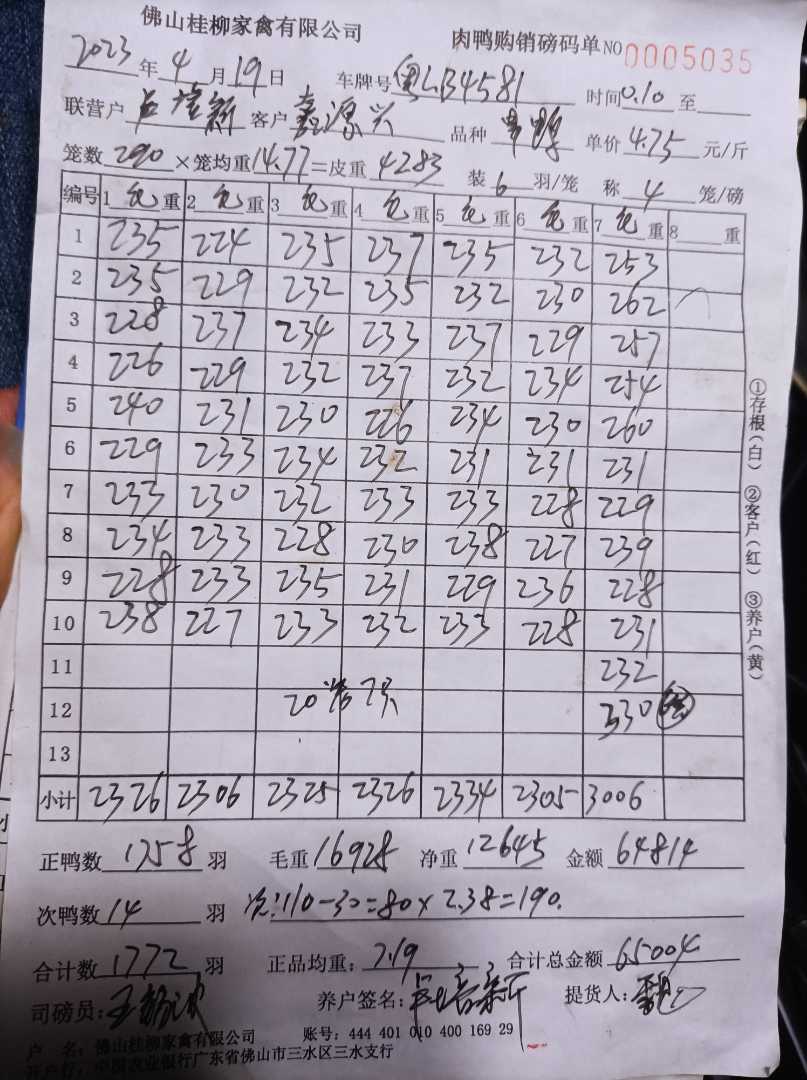 佛山桂柳家禽有限公司
肉鸭购销磅码单 NO 0005035
2023年4月19日 车牌号粤LB4581 时间0.10至
联营户 客户嘉源兴 品种 单价4.75元/斤
笼数290×笼均重14.77=皮重4283 装6羽/笼 称4笼/磅
编号 1 毛重 2 毛重 3 毛重 4 毛重 5 毛重 6 毛重 7 毛重 8 重
1 235 224 235 237 235 232 253
2 235 229 232 235 232 230 262
3 228 237 234 233 237 229 257
4 226 229 232 237 232 234 254
5 240 231 230 226 234 230 260
6 229 233 234 232 231 231 231
7 233 230 232 233 233 228 229
8 234 233 228 230 238 227 239
9 228 233 235 231 229 236 228
10 238 227 233 232 233 228 231
11 232
12 330
13
小计 2326 2306 2325 2326 2334 2305 3006
正鸭数1758羽 毛重16928 净重12645 金额64814
次鸭数14羽 次:110-30=80×2.38=190.
合计数1772羽 正品均重:7.19 合计总金额65004
司磅员: 养户签名: 提货人:
户 名:佛山桂柳家禽有限公司 账号:444 401 010 400 169 29
开户行:中国农业银行广东省佛山市三水区三水支行
①存根(白) ②客户(红) ③养户(黄)